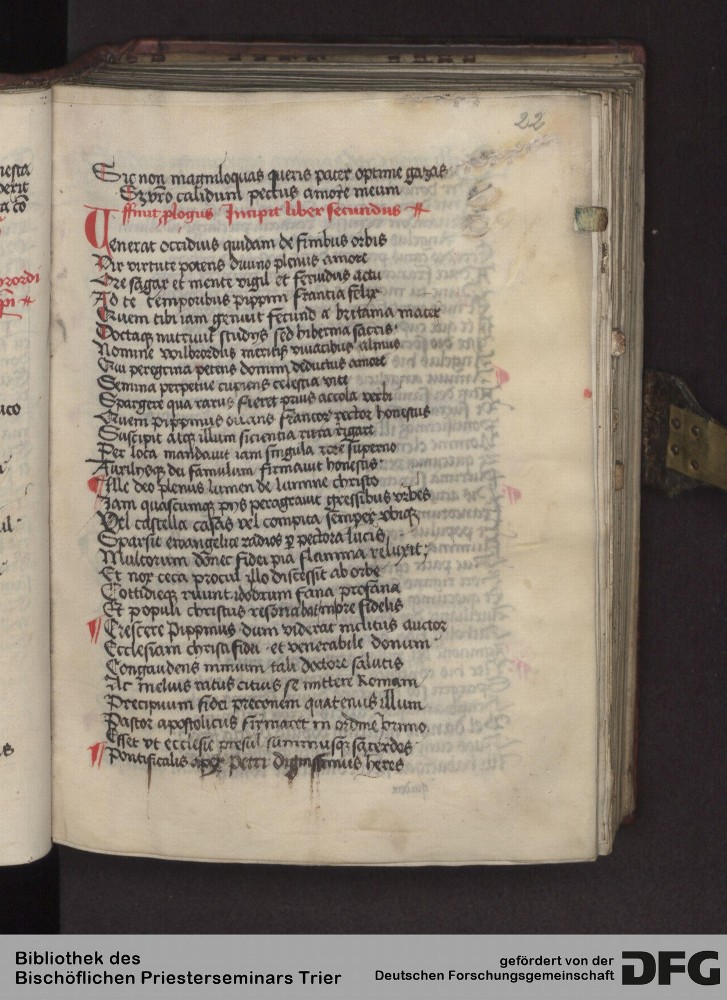 22
Sic non magniloquas queris pater optime gazas
Sz vro calidum pectus amore meum
ffinit plogus Incipit liber secundus
Venerat occiduis quidam de finibus orbis
Vir virtute potens diuino plenus amore
Ore sagax et mente vigil et feruidus actu
Ad te temporibus pippini francia felix
Quem tibi iam genuit fecunda britania mater
Doctaq nutriuit studijs sed hibernia sacris
Nomine wilbrordus meritis viuacibus almus
Qui peregrina petens domini deductus amore
Semina perpetue cupiens celestia vite
Spargere qua rarus fieret prius accola verbi
Quem pippinus ouans francor rector honestus
Suscipit atq illum sicientia rura rigare
Per loca mandauit iam singula rore superno
Aurilijsq dei famulum firmauit honestis
Ille deo plenus lumen de lumine christo
Iam quascumq pijs peragrauit gressibus vrbes
Vel castella casas vel compita semper vbiq
Sparsit ewangelice radios p pectora lucis
Multorum donec fidei pia flamma reluxit
Et nox ceca procul illo discessit ab orbe
Cottidieq ruunt idolorum fana profana
Et populi christus resonabat in ore fidelis
Crescere Pippinus dum viderat inclitus auctor
Ecclesiam christi fidei et venerabile donum
Congaudens nimium tali doctore salutis
Ac melius ratus citius se mittere Romam
Precipuum fidei preconem quatenus illum
Pastor apostolicus firmaret in ordine primo
Esset vt ecclesie presul summusq sacerdos
Pontificalis apex Petri dignissimus heres
Bibliothek des
Bischöflichen Priesterseminars Trier
gefördert von der
Deutschen Forschungsgemeinschaft
DFG